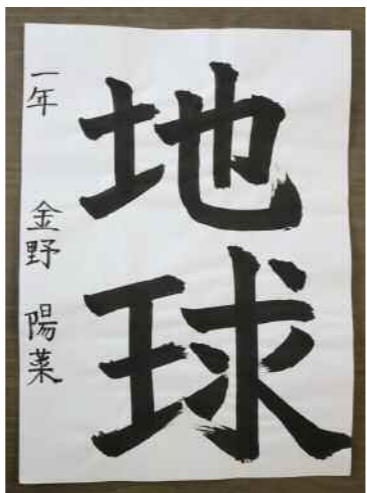 地球
一年 金野 陽菜